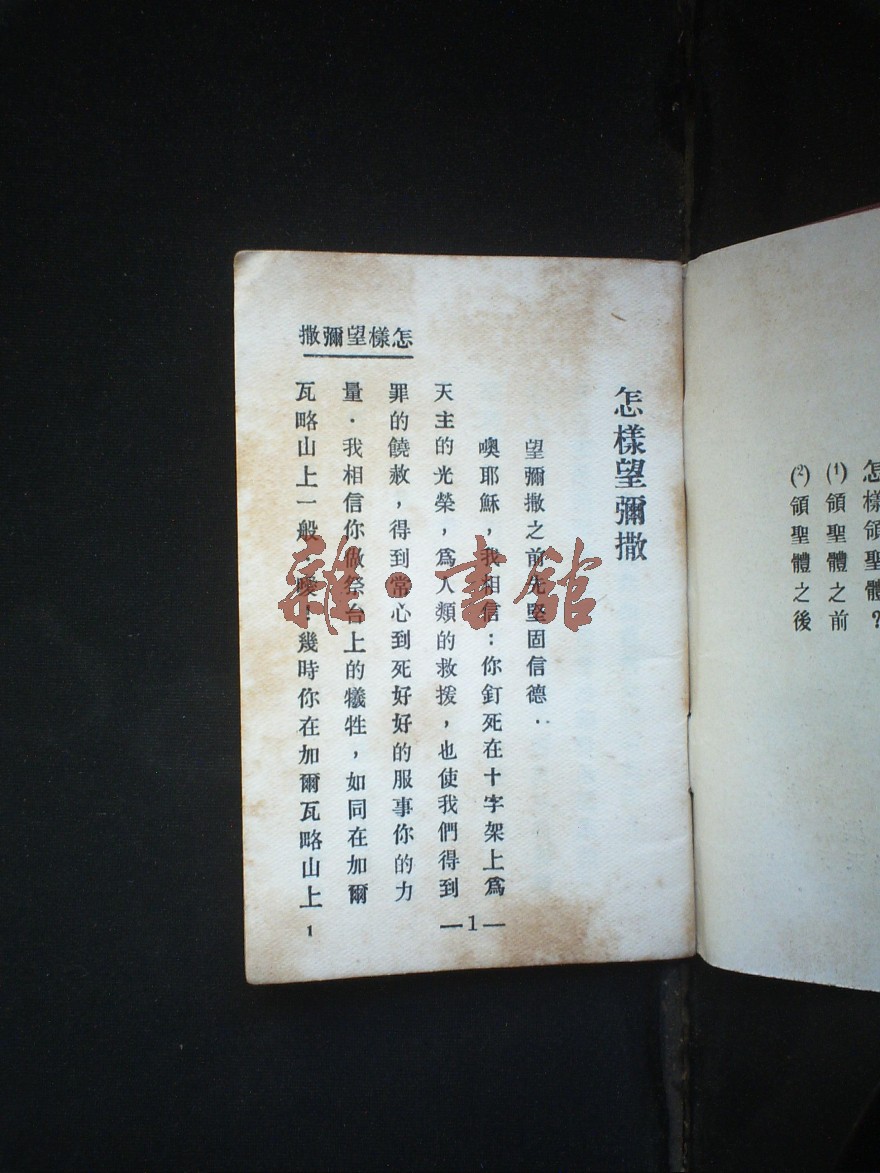 怎樣領聖體?
(1)領聖體之前
(2)領聖體之後
撒彌望樣怎
怎樣望彌撒
望彌撒之前先堅固信德：
噢耶穌，我相信：你釘死在十字架上爲
天主的光榮，爲人類的救援，也使我們得到
罪的饒赦，得到常心到死好好的服事你的力
量．我相信你做祭台上的犧牲，如同在加爾
瓦略山上一般．噯！幾時你在加爾瓦略山上
—1—
1
雜·書館